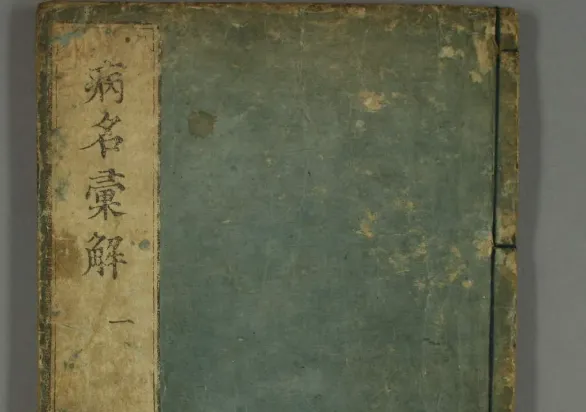 病名彙解 一